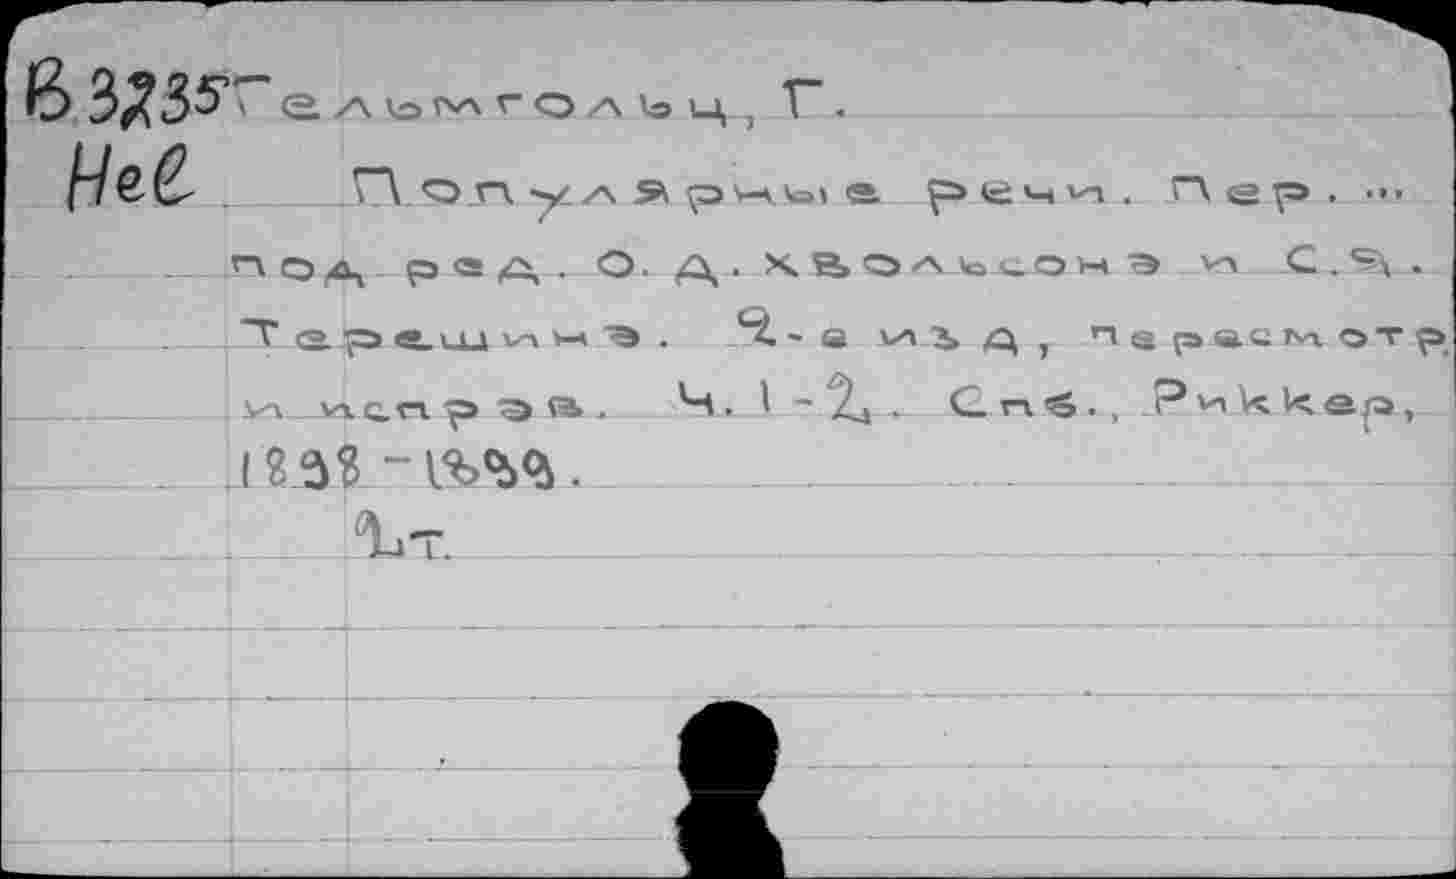 В3235 Гельмгольц, Г.
Неl Популярные речи. Пер. ...
под ред. О. Д. Хвольсона и С. Я.
Терешина. 2-е изд, перасмотр
и исправ. Ч. 1-2. Спб., Риккер,
1898-1899.
2т.